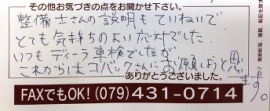 その他お気づきの点をお聞かせ下さい。
整備士さんの説明もていねいで
とても気持ちのよい応対でした
いつもディーラ車検でしたが
これからはコバックさんにお願いしようと思
います。
ありがとうございました。
FAXでもOK! (079)431-0714